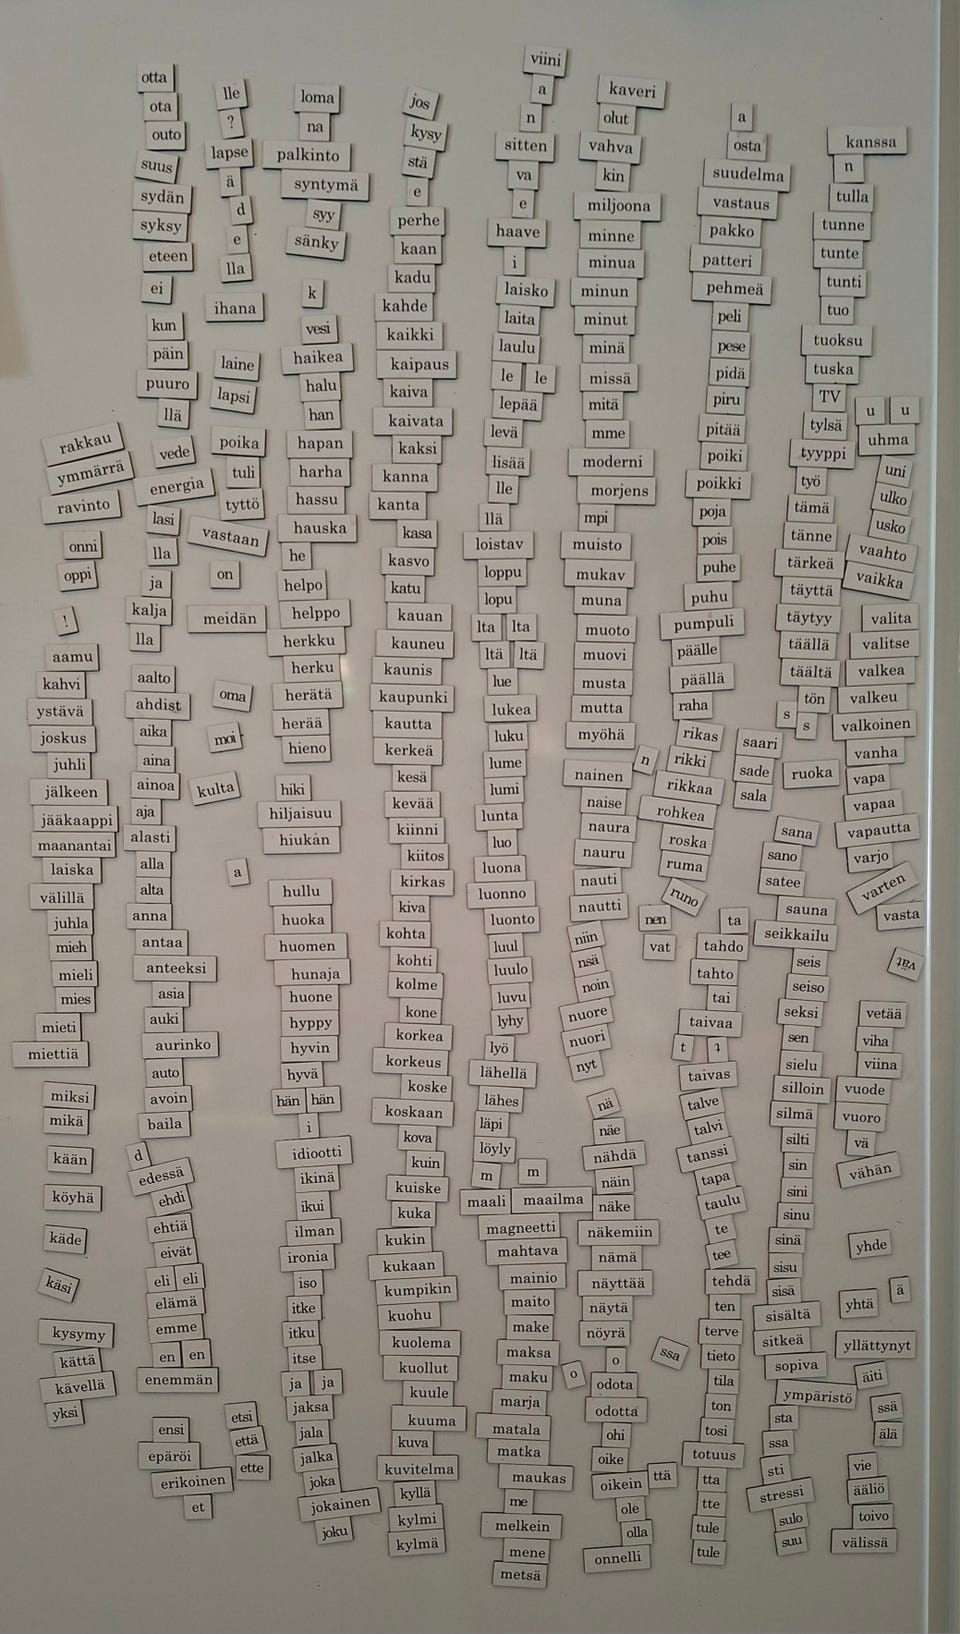 rakkau
ymmärrä
ravinto
onni
oppi
!
aamu
kahvi
ystävä
joskus
juhli
jälkeen
jääkaappi
maanantai
laiska
välillä
juhla
mieh
mieli
mies
mieti
miettiä
miksi
mikä
kään
köyhä
käde
käsi
kysymy
kättä
kävellä
yksi
otta
ota
outo
suus
sydän
syksy
eteen
ei
kun
päin
puuro
llä
vede
energia
lasi
lla
ja
kalja
lla
aalto
ahdist
aika
aina
ainoa
aja
alasti
alla
alta
anna
antaa
anteeksi
asia
auki
aurinko
auto
avoin
baila
d
edessä
ehdi
ehtiä
eivät
eli eli
elämä
emme
en en
enemmän
ensi
epäröi
erikoinen
et
lle
?
lapse
ä
d
e
lla
ihana
laine
lapsi
poika
tuli
tyttö
vastaan
on
meidän
oma
moi
kulta
a
etsi
että
ette
loma
na
palkinto
syntymä
syy
sänky
k
vesi
haikea
halu
han
hapan
harha
hassu
hauska
he
helpo
helppo
herkku
herku
herätä
herää
hieno
hiki
hiljaisuu
hiukan
hullu
huoka
huomen
hunaja
huone
hyppy
hyvin
hyvä
hän hän
i
idiootti
ikinä
ikui
ilman
ironia
iso
itke
itku
itse
ja ja
jaksa
jala
jalka
joka
jokainen
joku
jos
kysy
stä
e
perhe
kaan
kadu
kahde
kaikki
kaipaus
kaiva
kaivata
kaksi
kanna
kanta
kasa
kasvo
katu
kauan
kauneu
kaunis
kaupunki
kautta
kerkeä
kesä
kevää
kiinni
kiitos
kirkas
kiva
kohta
kohti
kolme
kone
korkea
korkeus
koske
koskaan
kova
kuin
kuiske
kuka
kukin
kukaan
kumpikin
kuohu
kuolema
kuollut
kuule
kuuma
kuva
kuvitelma
kyllä
kylmi
kylmä
viini
a
n
sitten
va
e
haave
i
laisko
laita
laulu
le le
lepää
levä
lisää
lle
llä
loistav
loppu
lopu
lta lta
ltä ltä
lue
lukea
luku
lume
lumi
lunta
luo
luona
luonno
luonto
luul
luulo
luvu
lyhy
lyö
lähellä
lähes
läpi
löyly
m m
maali maailma
magneetti
mahtava
mainio
maito
make
maksa
maku
marja
matala
matka
maukas
me
melkein
mene
metsä
kaveri
olut
vahva
kin
miljoona
minne
minua
minun
minut
minä
missä
mitä
mme
moderni
morjens
mpi
muisto
mukav
muna
muoto
muovi
musta
mutta
myöhä
n
nainen
naise
naura
nauru
nauti
nautti
niin
nsä
noin
nuore
nuori
nyt
nä
näe
nähdä
näin
näke
näkemiin
nämä
näyttää
näytä
nöyrä
o
o
odota
odotta
ohi
oike
oikein ttä
ole
olla
onnelli
a
osta
suudelma
vastaus
pakko
patteri
pehmeä
peli
pese
pidä
piru
pitää
poiki
poikki
poja
pois
puhe
puhu
pumpuli
päälle
päällä
raha
rikas
rikki
rikkaa
rohkea
roska
ruma
runo
nen
vat
ssa
ta
tahdo
tahto
tai
taivaa
t t
taivas
talve
talvi
tanssi
tapa
taulu
te
tee
tehdä
ten
terve
tieto
tila
ton
tosi
totuus
tta
tte
tule
tule
kanssa
n
tulla
tunne
tunte
tunti
tuo
tuoksu
tuska
TV
tylsä
tyyppi
työ
tämä
tänne
tärkeä
täyttä
täytyy
täällä
täältä
tön
s
s
saari
sade
sala
ruoka
sana
sano
satee
sauna
seikkailu
seis
seiso
seksi
sen
sielu
silloin
silmä
silti
sin
sini
sinu
sinä
sisu
sisä
sisältä
sitkeä
sopiva
ympäristö
sta
ssa
sti
stressi
sulo
suu
u u
uhma
uni
ulko
usko
vaahto
vaikka
valita
valitse
valkea
valkeu
valkoinen
vanha
vapa
vapaa
vapautta
varjo
varten
vasta
vät
vetää
viha
viina
vuode
vuoro
vä
vähän
yhde
ä
yhtä
yllättynyt
äiti
ssä
älä
vie
ääliö
toivo
välissä